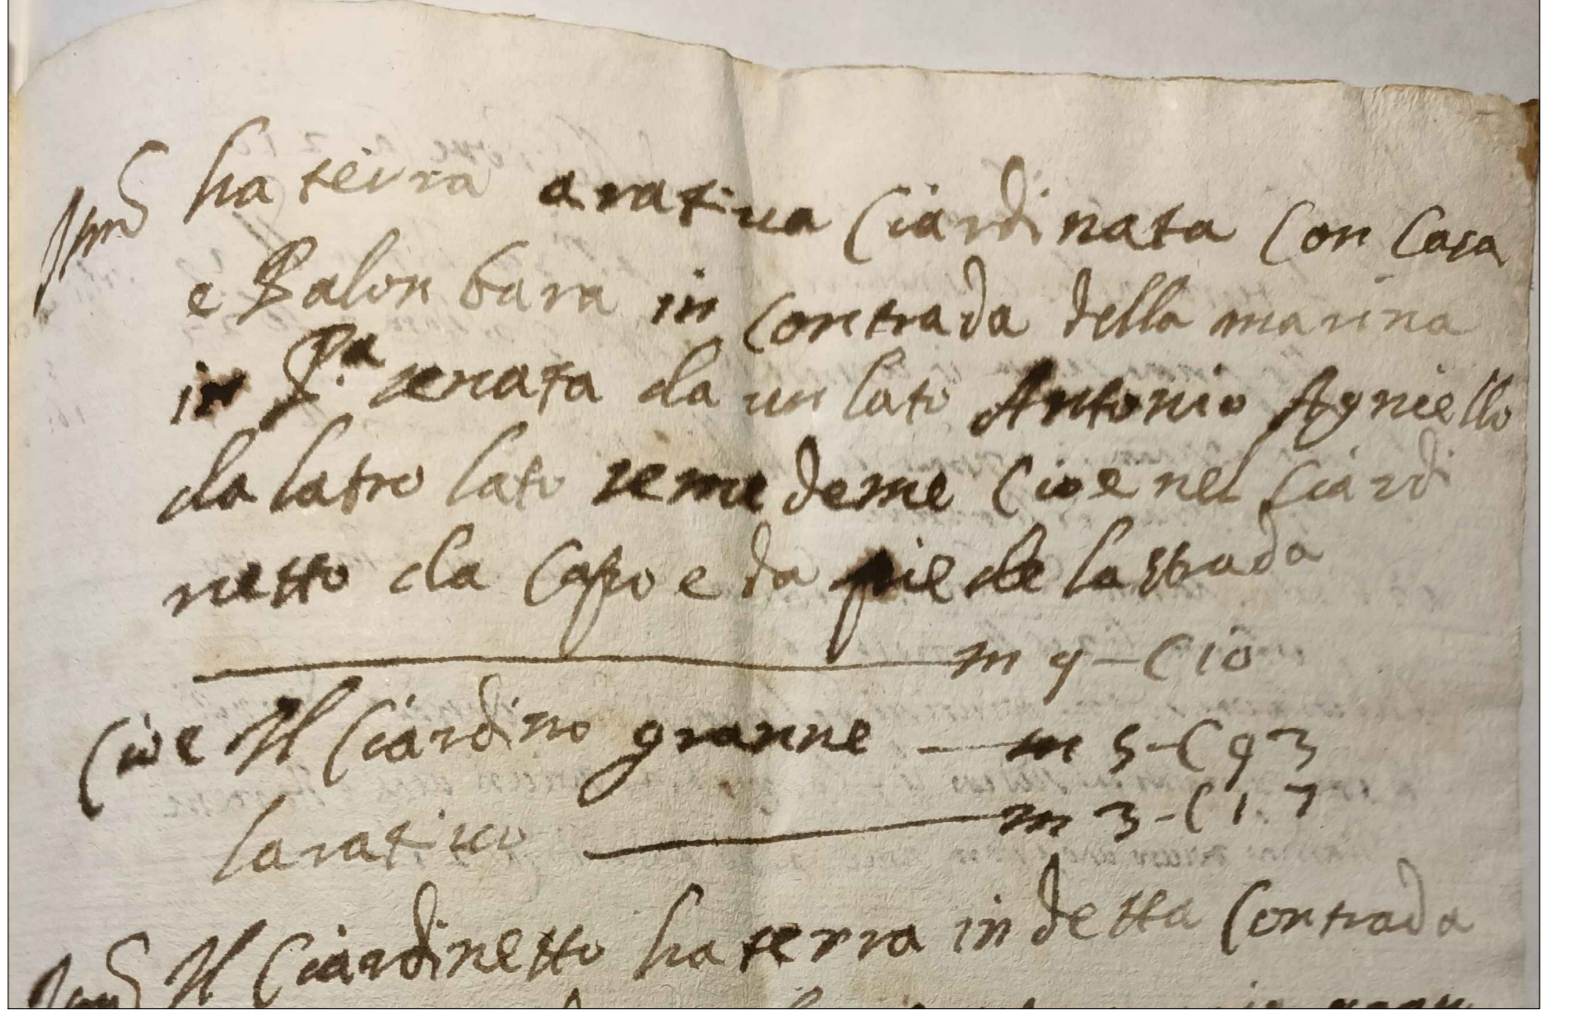 ha terra aratiua Ciardinata Con Casa
e Palon bara in Contrada della marina
in P.a serrata da un lato Antonio Agniello
da latro lato semedeme Cioe nel Ciardi
netto da Capo e da piede la strada
m 9-C 10
Cioe Il Ciardino granne m 5-C 93
laratiuo m 3-C 17
Il Ciardinetto ha terra in detta Contrada